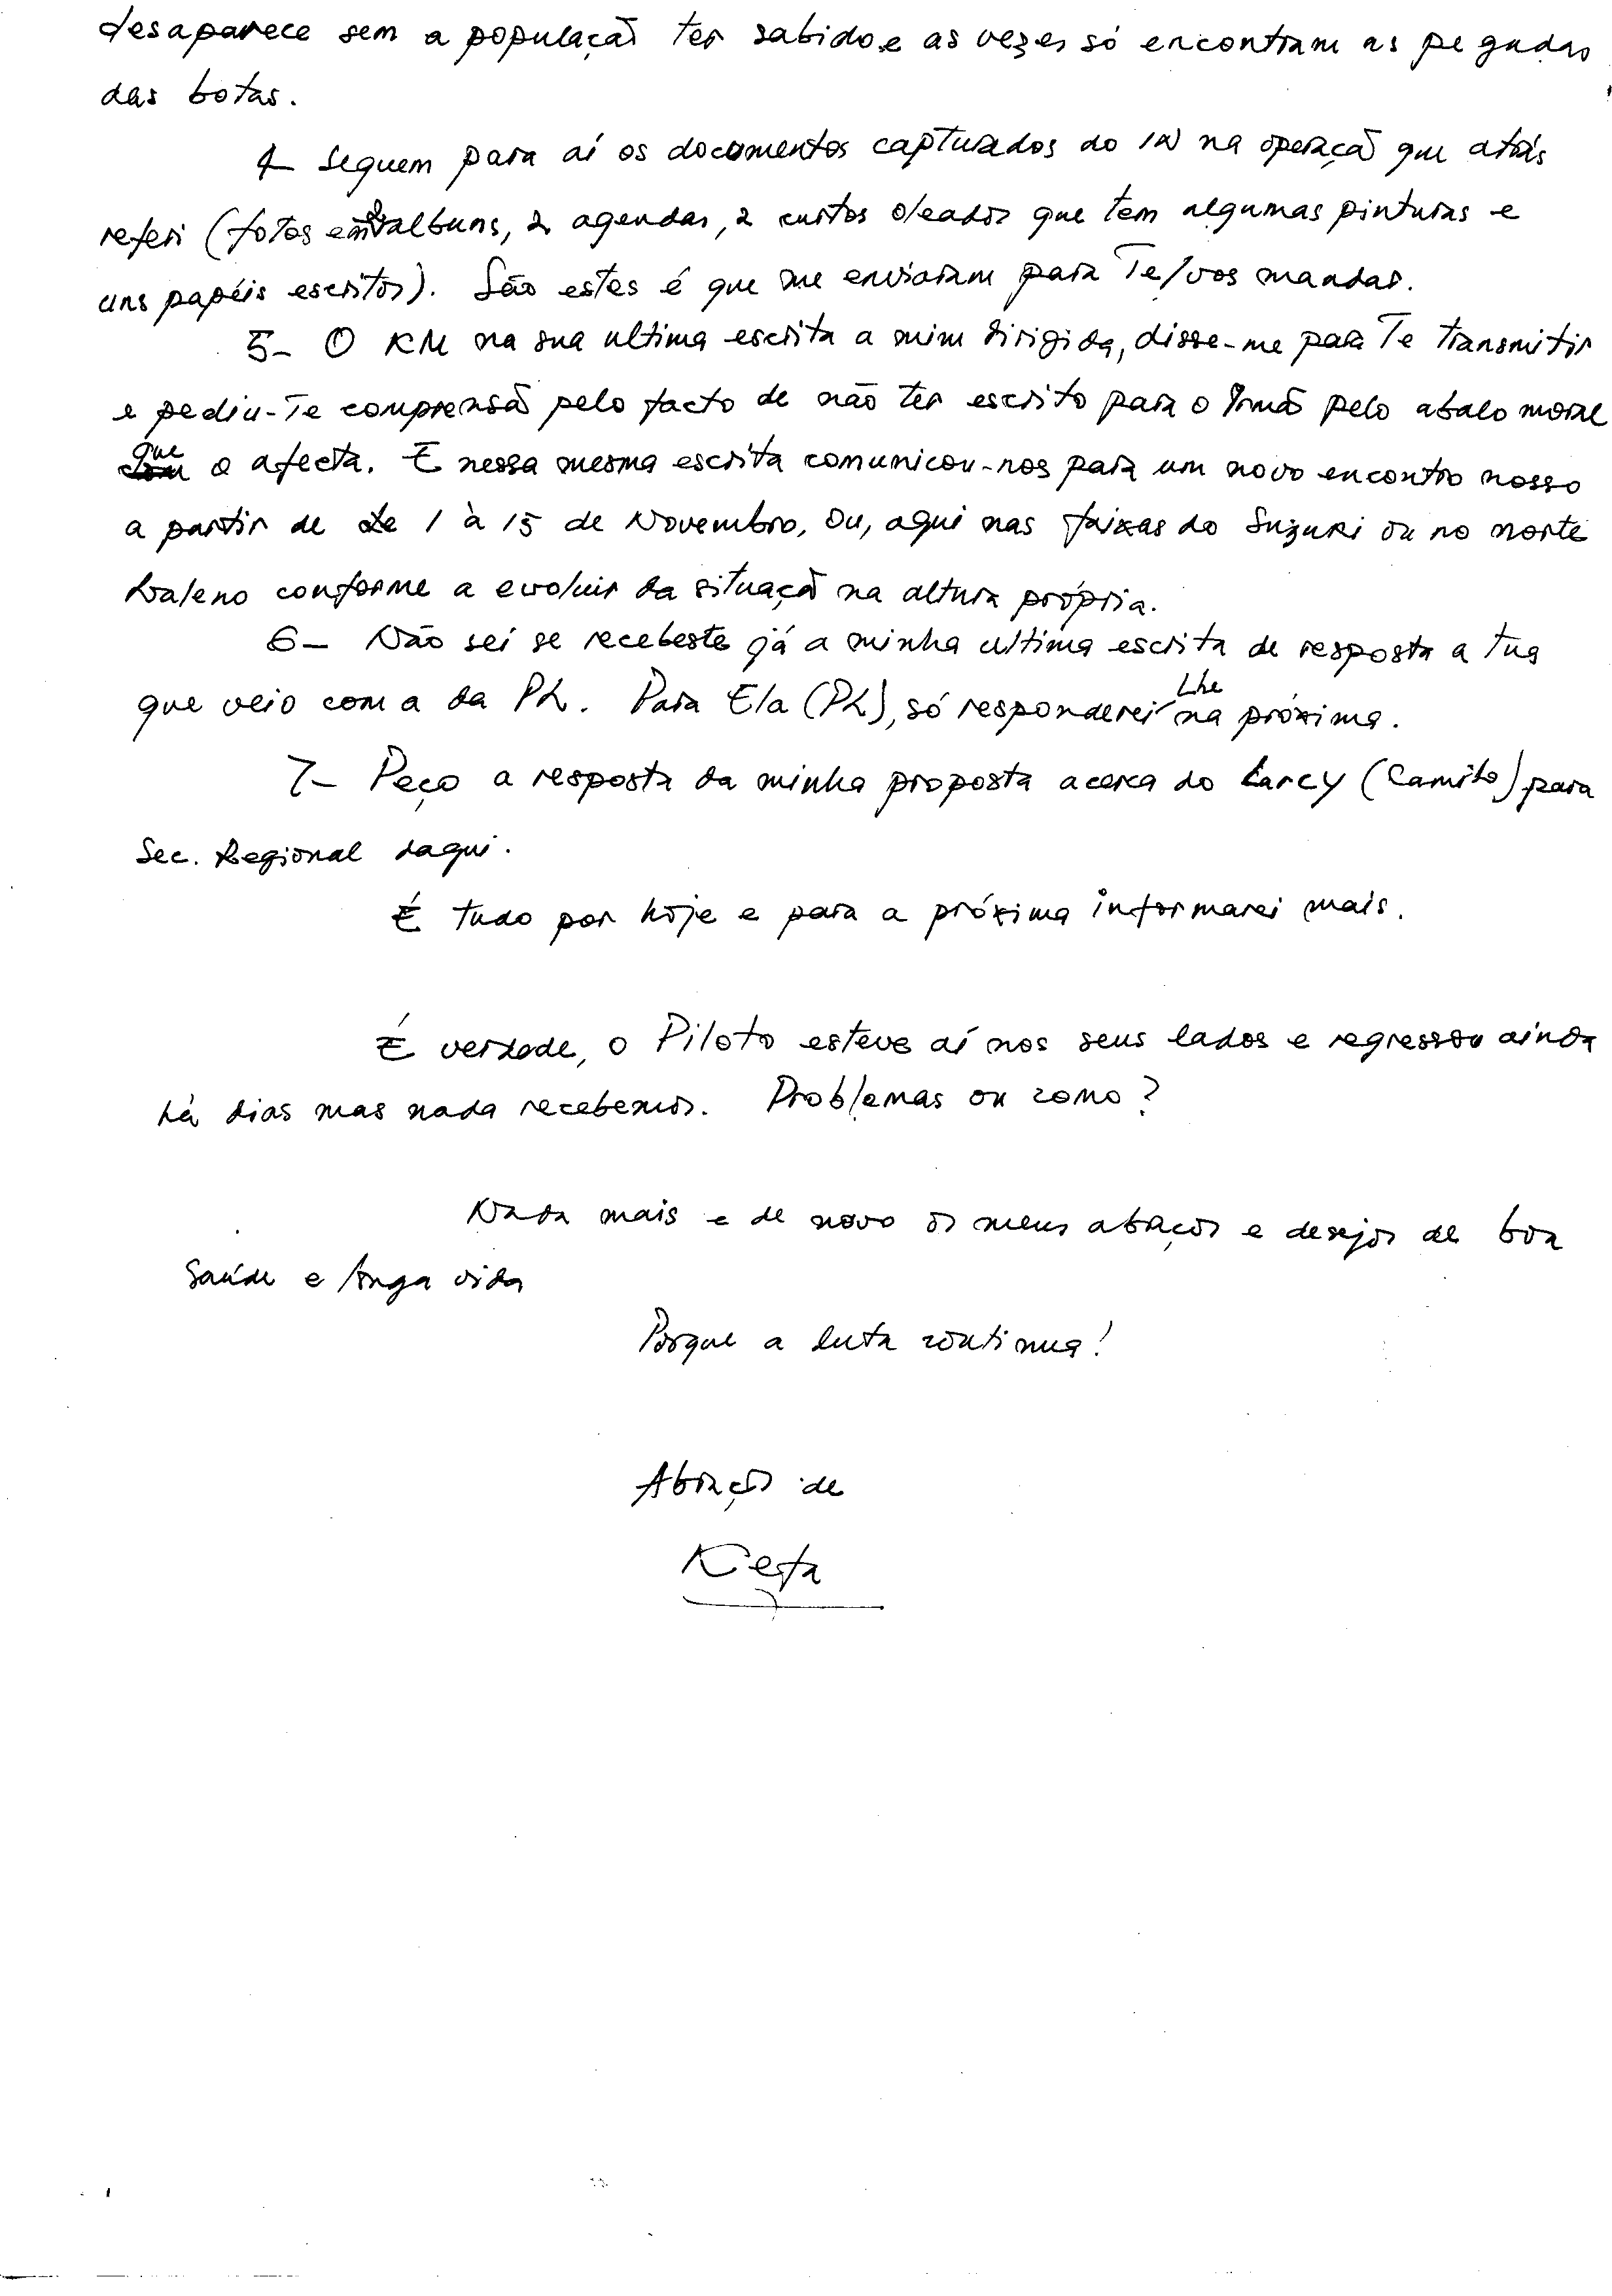 desaparece sem a população ter sabido e as vezes só encontram as pegadas
das botas.
4- Seguem para aí os documentos capturados do IN na operação que atrás
referi (fotos em albuns, 2 agendas, 2 oleados que tem algumas pinturas e
uns papéis escritos). São estes é que me enviaram para Te/vos mandar.
5- O KM na sua ultima escrita a mim dirigida, disse-me para Te transmitir
e pediu-Te comprensão pelo facto de não ter escrito para o Irmão pelo abalo moral
que o afecta. E nessa mesma escrita comunicou-nos para um novo encontro nosso
a partir de de 1 à 15 de Novembro, ou, aqui nas faixas do Suzuki ou no norte
Daleno conforme a evoluir da situação na altura própria.
6- Não sei se recebeste já a minha ultima escrita de resposta a tua
que veio com a da PL. Para Ela (PL), só responderei Lhe na próxima.
7- Peço a resposta da minha proposta acerca do Larcy (Camilo) para
Sec. Regional daqui.
É tudo por hoje e para a próxima informarei mais.
É verdade, o Piloto esteve aí nos seus lados e regressou ainda
há dias mas nada recebemos. Problemas ou como?
Nada mais e de novo os meus abraços e desejos de boa
saúde e longa vida
Porque a luta continua!
Abraços de